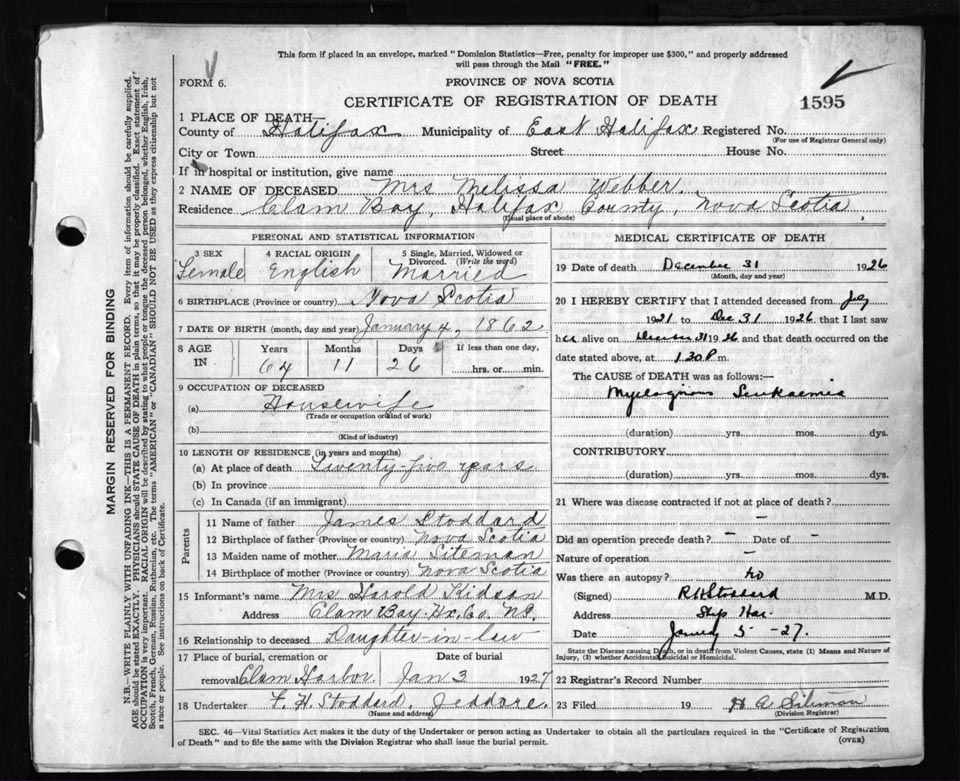 This form if placed in an envelope, marked "Dominion Statistics—Free, penalty for improper use $300," and properly addressed
will pass through the Mail "FREE."
FORM 6.
PROVINCE OF NOVA SCOTIA
CERTIFICATE OF REGISTRATION OF DEATH
1595
1 PLACE OF DEATH—
County of Halifax Municipality of East Halifax Registered No.
(For use of Registrar General only)
City or Town Street House No.
If in hospital or institution, give name
2 NAME OF DECEASED Mrs Melissa Webber.
Residence Clam Bay, Halifax County, Nova Scotia
(Usual place of abode)
PERSONAL AND STATISTICAL INFORMATION
3 SEX 4 RACIAL ORIGIN 5 Single, Married, Widowed or
Divorced. (Write the word)
Female English Married
6 BIRTHPLACE (Province or country) Nova Scotia
7 DATE OF BIRTH (month, day and year) January 4, 1862
8 AGE IN Years Months Days If less than one day,
64 11 26 hrs. or min.
9 OCCUPATION OF DECEASED
(a) Housewife
(Trade or occupation or kind of work)
(b)
(Kind of industry)
10 LENGTH OF RESIDENCE (in years and months)
(a) At place of death Twenty-five years
(b) In province
(c) In Canada (if an immigrant)
Parents
11 Name of father James Stoddard
12 Birthplace of father (Province or country) Nova Scotia
13 Maiden name of mother Maria Siteman
14 Birthplace of mother (Province or country) Nova Scotia
15 Informant's name Mrs Harold Kidson
Address Clam Bay. Hx. Co. N.S.
16 Relationship to deceased Daughter-in-law
17 Place of burial, cremation or Date of burial
removal Clam Harbor Jan 3 1927
18 Undertaker F. H. Stoddard, Jeddore.
(Name and address)
MEDICAL CERTIFICATE OF DEATH
19 Date of death December 31 1926
(Month, day and year)
20 I HEREBY CERTIFY that I attended deceased from
1921 to Dec 31 1926 that I last saw
her alive on December 31 1926 and that death occurred on the
date stated above, at 1.30 P. m.
The CAUSE OF DEATH was as follows:—
Myelogenous Leukaemia
(duration) yrs. mos. dys.
CONTRIBUTORY.
(duration) yrs. mos. dys.
21 Where was disease contracted if not at place of death?
—
Did an operation precede death? — Date of —
Nature of operation —
Was there an autopsy? no
(Signed) R H Stoddard M.D.
Address Ship Har.
Date January 5 - 27.
State the Disease causing Death, or in death from Violent Causes, state (1) Means and Nature of
Injury, (2) whether Accidental, Suicidal or Homicidal.
22 Registrar's Record Number
23 Filed 19 H A Siteman
(Division Registrar)
SEC. 46—Vital Statistics Act makes it the duty of the Undertaker or person acting as Undertaker to obtain all the particulars required in the "Certificate of Registration
of Death" and to file the same with the Division Registrar who shall issue the burial permit.
(OVER)
MARGIN RESERVED FOR BINDING
N.B.—WRITE PLAINLY WITH UNFADING INK—THIS IS A PERMANENT RECORD. Every item of information should be carefully supplied.
AGE should be stated EXACTLY. PHYSICIANS should STATE CAUSE OF DEATH in plain terms, so that it may be properly classified. Exact statement of
OCCUPATION is very important. RACIAL ORIGIN will be described by stating to what people or tongue the deceased person belonged, whether English, Irish,
Scotch, French, German, Russian, Ruthenian, etc. The terms "AMERICAN" or "CANADIAN" SHOULD NOT BE USED as they express citizenship but not
a race or people. See instructions on back of Certificate.